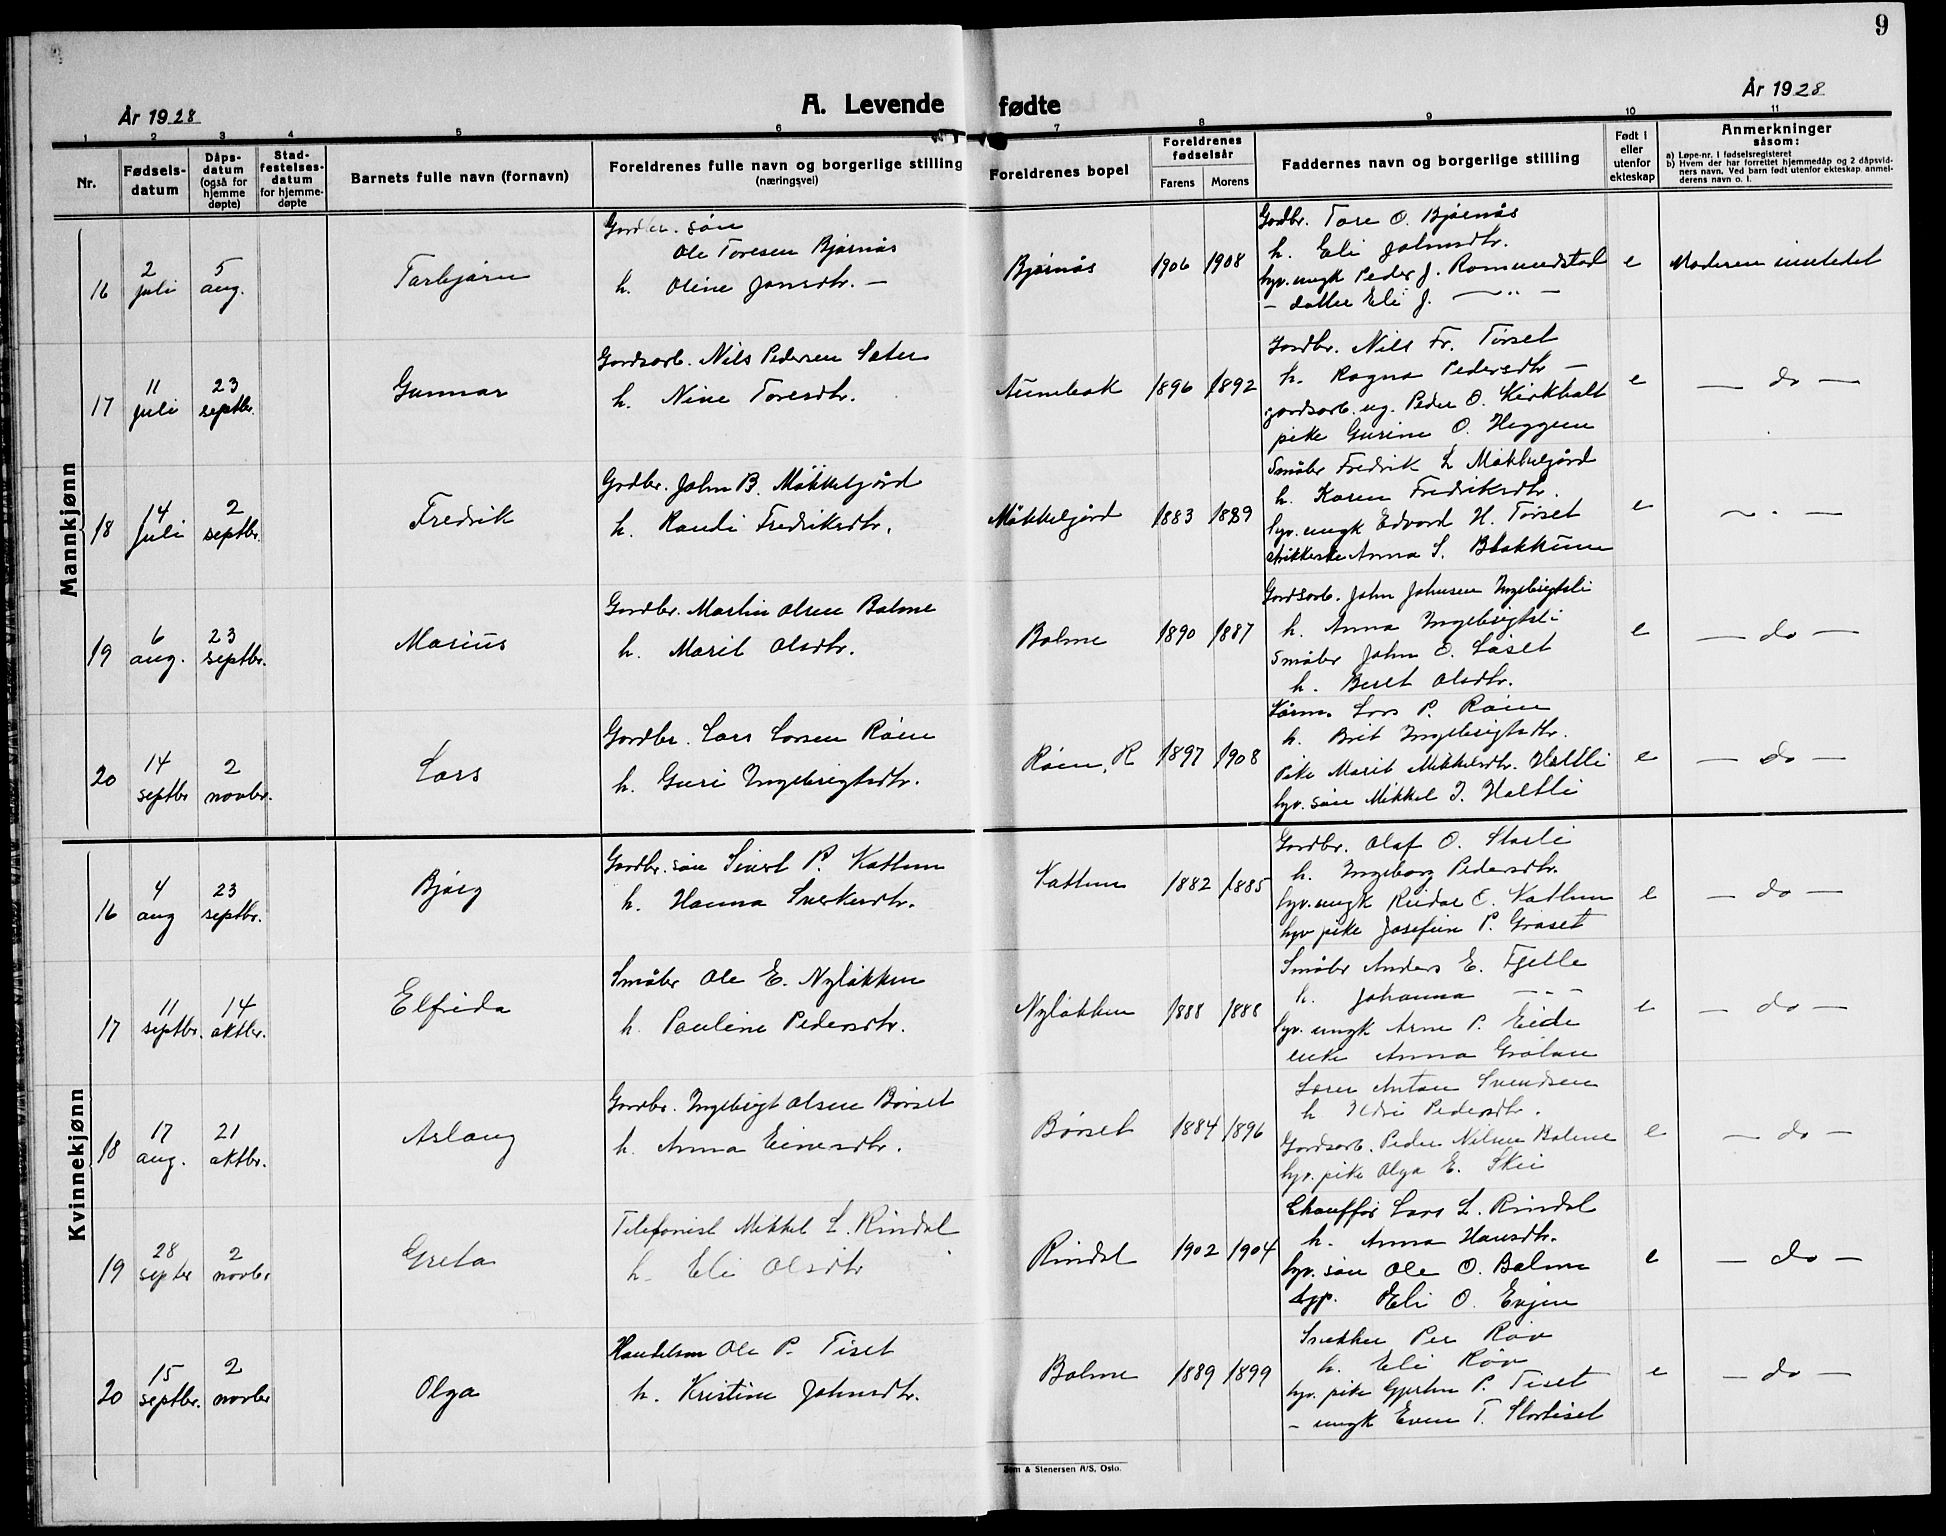 9
År 1928
A. Levende fødte
År 1928
1 2 3 4 5 6 7 8 9 10 11
Nr.
Fødsels-datum
Dåps-datum (også for hjemme døpte)
Stad-festelses-datum for hjemme-døpte
Barnets fulle navn (fornavn)
Foreldrenes fulle navn og borgerlige stilling (næringsvei)
Foreldrenes bopel
Foreldrenes fødselsår
Farens Morens
Faddernes navn og borgerlige stilling
Født i eller utenfor ekteskap
Anmerkninger såsom:
a) Løpe-nr. i fødselsregisteret
b) Hvem der har forrettet hjemmedåp og 2 dåpsvid-
ners navn. Ved barn født utenfor ekteskap, anmel-
derens navn o. l.
Mannkjønn
16 2 juli 5 aug. Torbjørn
Gardbr. søn
Ole Toresen Bjørnås
h. Oline Jonsdtr. —
Bjørnås 1906 1908
Gardbr. Tore O. Bjørnås
h. Eli Johnsdtr.
hjv. ungk Peder J. Romundstad
— datter Eli J. — " —
e Moderen inntedet
17 11 juli 23 septbr. Gunnar
Gardsarb. Nils Pedersen Sæter
h. Nine Toresdtr.
Aunebak 1896 1892
Gardbr. Nils Fr. Tørset
h. Ragna Pedersdtr —
gardsarb. ug. Peder O. Kirkholt
pike Gurine O. Heggem
e — do —
18 14 juli 2 septbr. Fredrik
Grdbr. John B. Møkkelgård
h. Randi Fredriksdtr.
Møkkelgård 1883 1889
Småbr Fredrik L Møkkelgård
h. Karen Fredriksdtr.
hjv. ungk Edvard H. Tørset
strikkerske Anna S. Blakkum
e — " —
19 6 aug. 23 septbr. Marius
Gardbr. Martin Olsen Bolme
h. Marit Olsdtr.
Bolme 1890 1887
Gardsarb. John Johnsen Ingebrigtsli
h. Anna Ingebrigtsli
Småbr John O. Løset
h. Beret Olsdtr.
e — do —
20 14 septbr 2 novbr. Lars
Gardbr. Lars Larsen Røen
h. Guri Ingebrigtsdtr.
Røen, R 1897 1908
Kårm. Lars P. Røen
h. Brit Ingebrigtsdtr.
Pike Marit Mikkelsdtr. Haltli
hjv. søn Mikkel I. Haltli
e — do —
Kvinnekjønn
16 4 aug 23 septbr. Bjørg
Gardbr. søn Sivert P. Kattum
h. Hanna Sverkesdtr.
Kattum 1882 1885
Gardbr. Olaf O. Storli
h. Ingeborg Pedersdtr.
hjv. ungk Reidar E. Kattum
hjv pike Josefine P. Gråset
e — do —
17 11 septbr. 14 oktbr. Elfrida
Småbr Ole E. Nyløkken
h. Pauline Pedersdtr.
Nyløkken 1888 1888
Småbr Anders E. Fjelle
h. Johanna — " —
hjv. ungk Arne P. Eide
enke Anna Grølan
e — do —
18 17 aug. 21 oktbr. Aslaug
Gardbr. Ingebrigt Olsen Børset
h. Anna Einersdtr.
Børset 1884 1896
Lærer Anton Svendsen
h Pedersdtr.
Gardsarb. Peder Nilsen Bolme
hjv. pike Olga E. Skei
e — do —
19 28 septbr 2 novbr Greta
Telefonist Mikkel L. Rindal
h. Eli Olsdtr
Rindal 1902 1904
Chauffør Lars L. Rindal
h. Anna Hansdtr.
hjv. søn Ole O. Bolme
Eli O. Evjen
e — do —
20 15 septbr. 2 novbr Olga
Handelsm Ole P. Tiset
h. Kristine Johnsdtr.
Bolme 1889 1899
Snekker Per Røv
h. Eli Røv
hjv. pike Gjertin P. Tiset
— ungk Even T. Stortiset
e — do —
Sem & Stenersen A/S, Oslo.